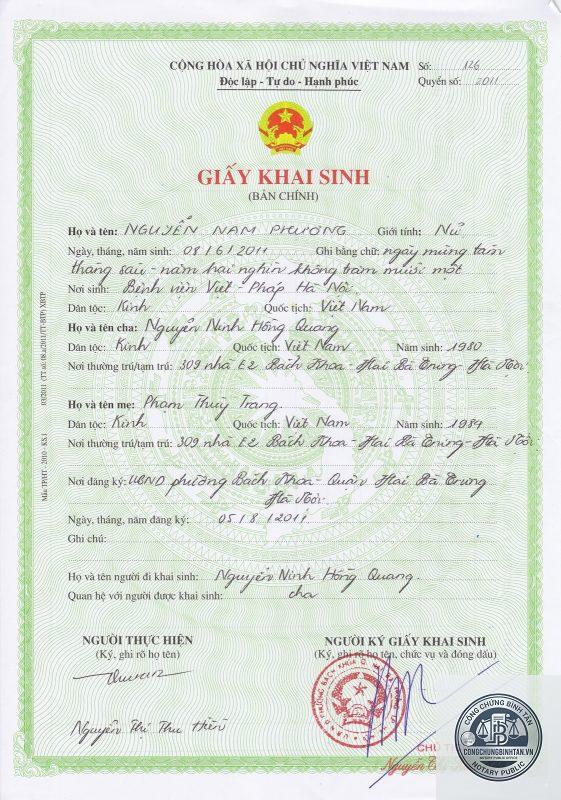 CỘNG HÒA XÃ HỘI CHỦ NGHĨA VIỆT NAM Số: 126
Độc lập - Tự do - Hạnh phúc Quyển số: 2011
GIẤY KHAI SINH
(BẢN CHÍNH)
Họ và tên: NGUYỄN NAM PHƯƠNG Giới tính: Nữ
Ngày, tháng, năm sinh: 08/6/2011 Ghi bằng chữ: ngày mùng tám
tháng sáu - năm hai nghìn không trăm mười một
Nơi sinh: Bệnh viện Việt - Pháp Hà Nội.
Dân tộc: Kinh Quốc tịch: Việt Nam
Họ và tên cha: Nguyễn Ninh Hồng Quang
Dân tộc: Kinh Quốc tịch: Việt Nam Năm sinh: 1980
Nơi thường trú/tạm trú: 309 nhà E2 Bách Khoa - Hai Bà Trưng - Hà Nội
Họ và tên mẹ: Phạm Thuỳ Trang
Dân tộc: Kinh Quốc tịch: Việt Nam Năm sinh: 1984
Nơi thường trú/tạm trú: 309 nhà E2 Bách Khoa - Hai Bà Trưng - Hà Nội
Nơi đăng ký: UBND phường Bách Khoa - Quận Hai Bà Trưng
Hà Nội
Ngày, tháng, năm đăng ký: 05/8/2011
Ghi chú:
Họ và tên người đi khai sinh: Nguyễn Ninh Hồng Quang.
Quan hệ với người được khai sinh: cha
NGƯỜI THỰC HIỆN
(Ký, ghi rõ họ tên)
Nguyễn Thị Thu Hiền
NGƯỜI KÝ GIẤY KHAI SINH
(Ký, ghi rõ họ tên, chức vụ và đóng dấu)
CHỦ
Nguyễn
CÔNG CHỨNG BÌNH TÂN
CONGCHUNGBINHTAN.VN
NOTARY PUBLIC OFFICE
NOTARY PUBLIC